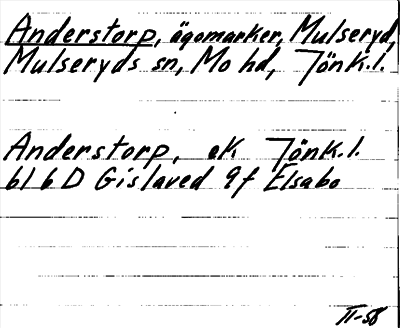 Anderstorp, ägomarker, Mulseryd,
Mulseryds sn, Mo hd, Jönk.l.
Anderstorp, ek Jönk.l.
6l 6 D Gislaved 9f Elsabo
II-58